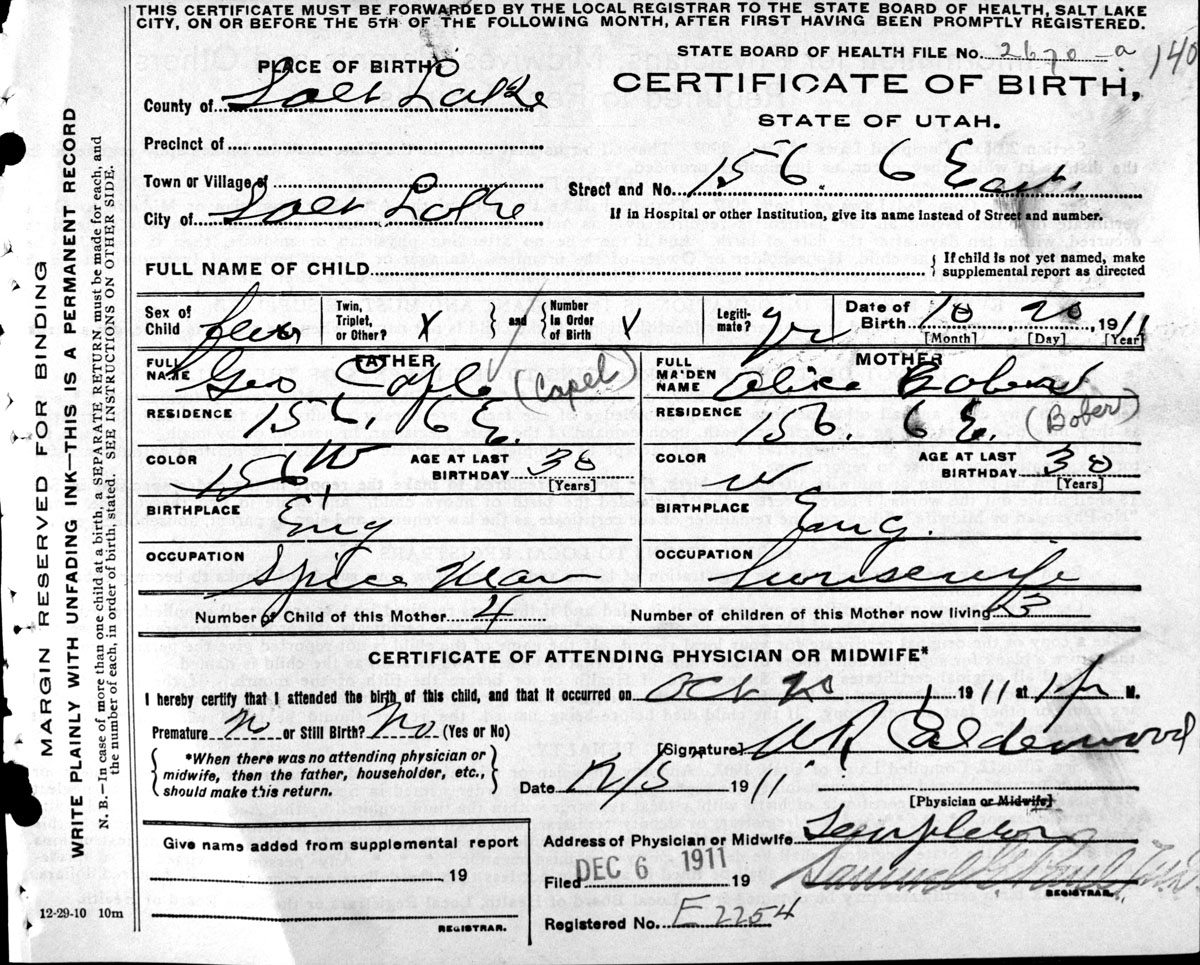 THIS CERTIFICATE MUST BE FORWARDED BY THE LOCAL REGISTRAR TO THE STATE BOARD OF HEALTH, SALT LAKE
CITY, ON OR BEFORE THE 5TH OF THE FOLLOWING MONTH, AFTER FIRST HAVING BEEN PROMPTLY REGISTERED.
STATE BOARD OF HEALTH FILE No. 2670-a
140
PLACE OF BIRTH
CERTIFICATE OF BIRTH,
County of Salt Lake
STATE OF UTAH.
Precinct of
Town or Village of
Street and No. 156. 6 East
City of Salt Lake
If in Hospital or other Institution, give its name instead of Street and number.
FULL NAME OF CHILD
{ If child is not yet named, make
supplemental report as directed
Sex of Child
Twin, Triplet, or Other? X } and { Number In Order of Birth X
Legitimate? yes
Date of Birth 10 20 1911
[Month] [Day] [Year]
FATHER
FULL NAME Geo Cople (Capel)
RESIDENCE 156. 6 E.
COLOR 156 W
AGE AT LAST BIRTHDAY 30
[Years]
BIRTHPLACE Eng
OCCUPATION Spice Man
MOTHER
FULL MAIDEN NAME Alice Bobers (Bober)
RESIDENCE 156. 6 E.
COLOR w
AGE AT LAST BIRTHDAY 30
[Years]
BIRTHPLACE Eng.
OCCUPATION housewife
Number of Child of this Mother 4
Number of children of this Mother now living 3
CERTIFICATE OF ATTENDING PHYSICIAN OR MIDWIFE*
I hereby certify that I attended the birth of this child, and that it occurred on Oct 20, 1911 at 1 P M.
Premature No or Still Birth? No (Yes or No)
{ *When there was no attending physician or
midwife, then the father, householder, etc.,
should make this return. }
[Signature] Calderwood
Date 11/5 1911
[Physician or Midwife]
Address of Physician or Midwife Templeton
Give name added from supplemental report
19
REGISTRAR.
Filed DEC 6 1911 19
Samuel G. Paul
REGISTRAR.
Registered No. E2254
12-29-10 10m
MARGIN RESERVED FOR BINDING
WRITE PLAINLY WITH UNFADING INK—THIS IS A PERMANENT RECORD
N. B.—In case of more than one child at a birth, a SEPARATE RETURN must be made for each, and
the number of each, in order of birth, stated. SEE INSTRUCTIONS ON OTHER SIDE.